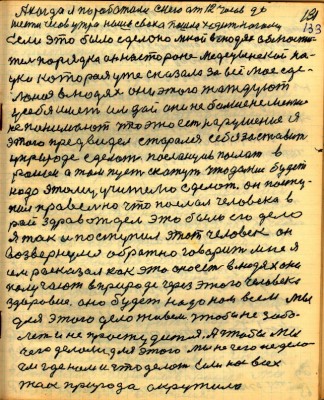 131
133
А когда я поработал с него от 12 часов до
шести часов утра наше свека пошла ходить ногами
Если это было сделоно мной в людях я являюсь
тел порядка а на стороне Медецынской на
ука которая уже сказала за всё мое сде-
лоная в людях они этого жаждуют
у себя иметь и дай они не болше не меньше
не понимают что это есть нарушение я
этого предвидел старался себя заставить
в природе сделать послание послать в
раяев а там пусть скажут что дальше будет
надо этому учителю сделать. он посту-
пил правельно что послал человека в
рай здрав отдел это было его дело
Я так и поступил этот человек он
возвернулся обратно говорит мне я
им расказал как это способ в людях они
получают в природе через этого человека
здоровие. оно будет надо нам всем мы
для этого дело живем чтобы не забо-
леть и не простудится. А чтобы мы
чего делали для этого мы не чего не дело-
ем где нам и что делать если нас всех
жах природа окружила